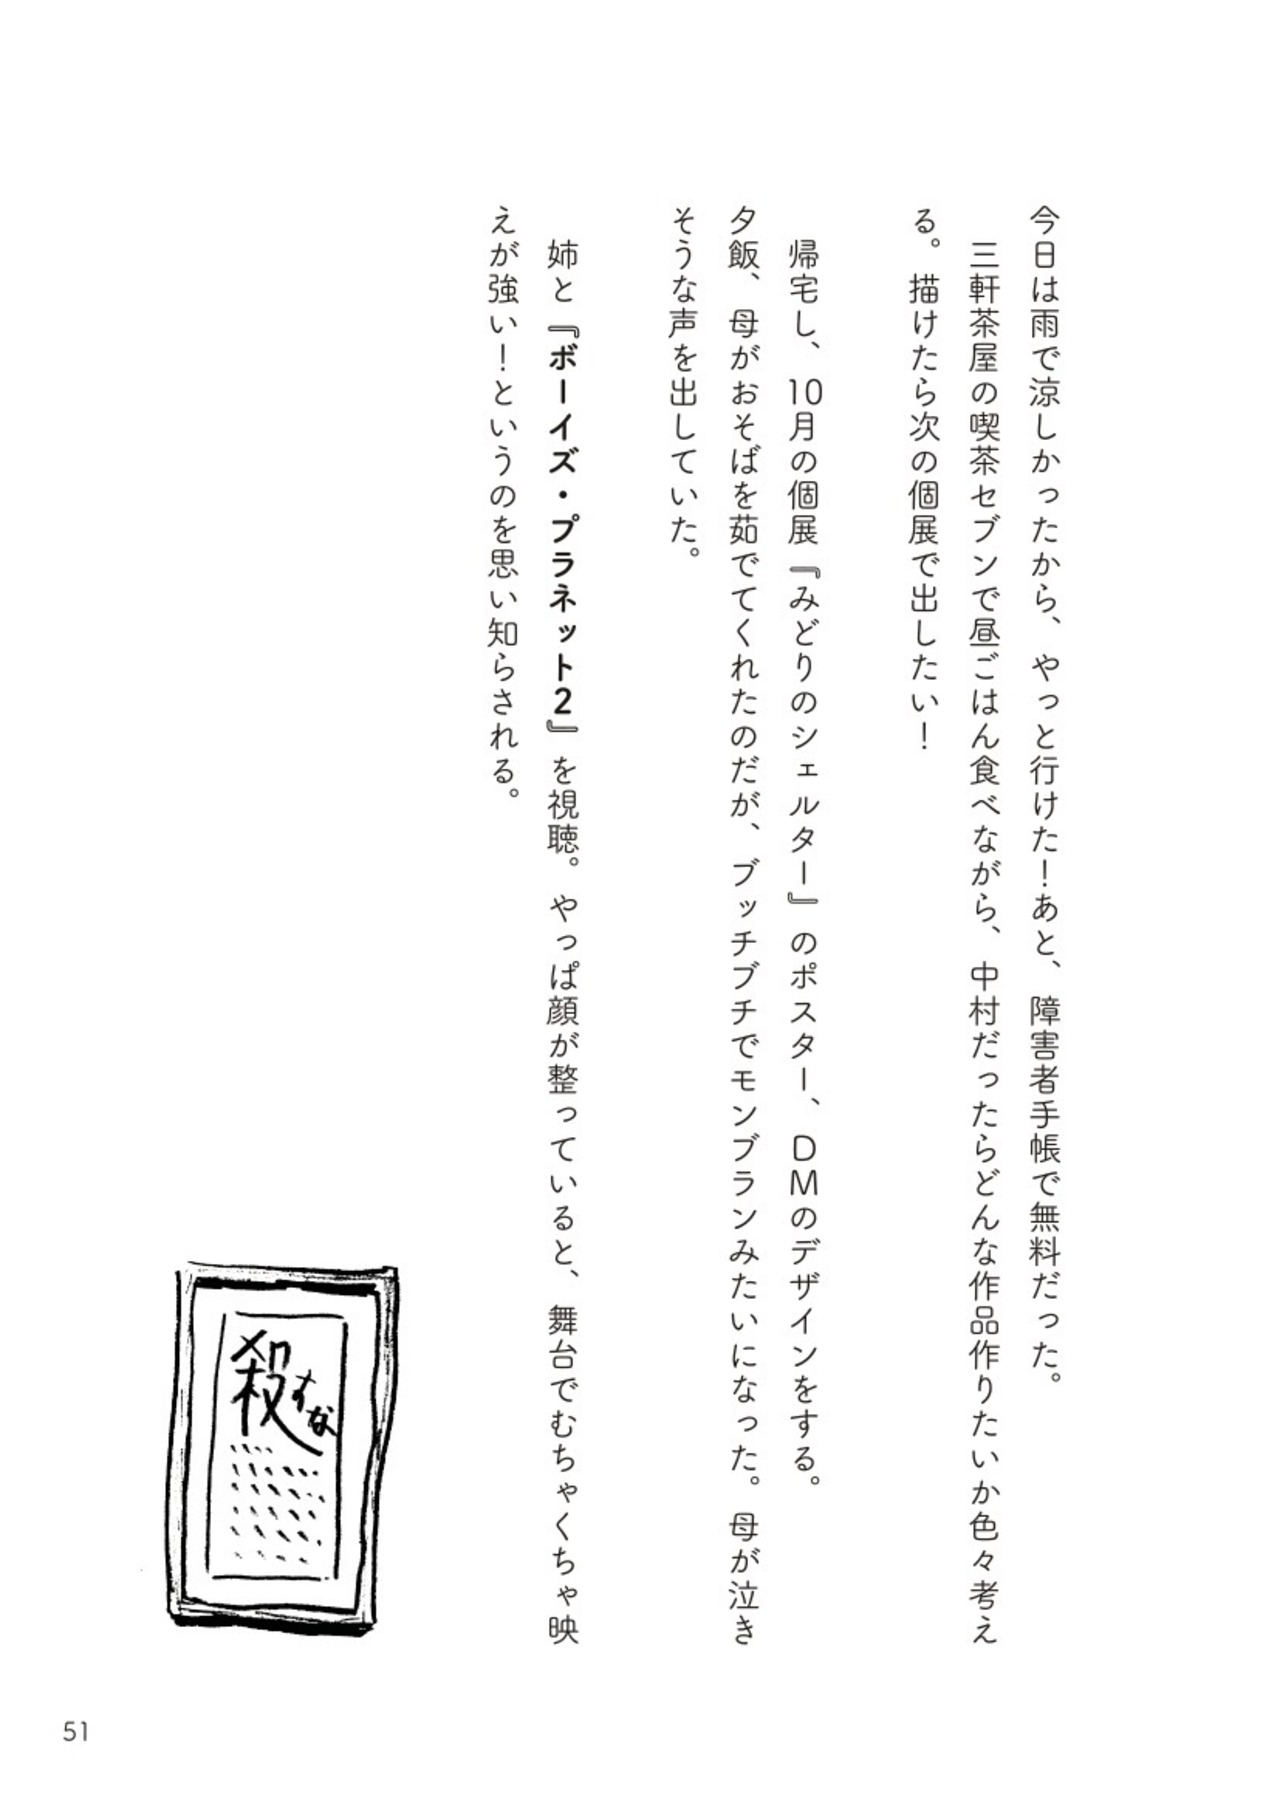 今日は雨で涼しかったから、やっと行けた！あと、障害者手帳で無料だった。
三軒茶屋の喫茶セブンで昼ごはん食べながら、中村だったらどんな作品作りたいか色々考え
る。描けたら次の個展で出したい！
帰宅し、10月の個展『みどりのシェルター』のポスター、DMのデザインをする。
夕飯、母がおそばを茹でてくれたのだが、ブッチブチでモンブランみたいになった。母が泣き
そうな声を出していた。
姉と『ボーイズ・プラネット2』を視聴。やっぱ顔が整っていると、舞台でむちゃくちゃ映
えが強い！というのを思い知らされる。
殺すな
51